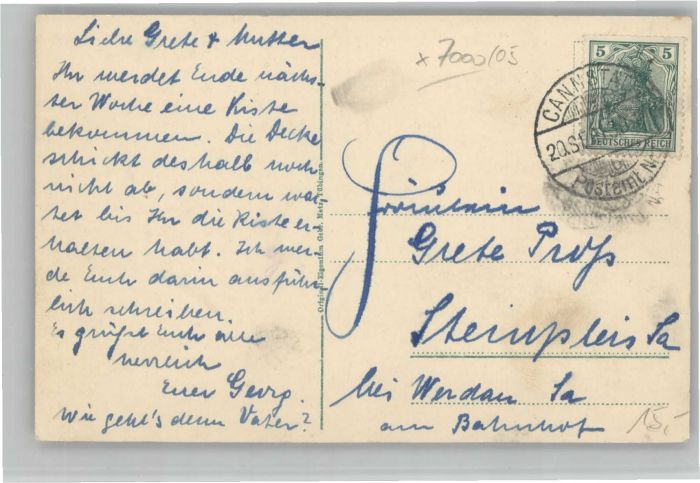 Liebe Grete & Mutter
Ihr werdet Ende näch-
ster Woche eine Kiste
bekommen. Die Decke
schickt deshalb noch
nicht ab, sondern war
tet bis Ihr die Kiste er
halten habt. Ich wer-
de Euch darin ausführ
lich schreiben.
Es grüßt Euch alle
herzlich
Euer Georg.
Wie geht's denn Vater?
Original-Eigentum Gebr. Metz, Tübingen
x 7000/05
5 5
DEUTSCHES REICH
CANNSTATT
20.SEP
Postamt N
Fräulein
Grete Proß
Steinpleis Sa
bei Werdau Sa
am Bahnhof
15,-